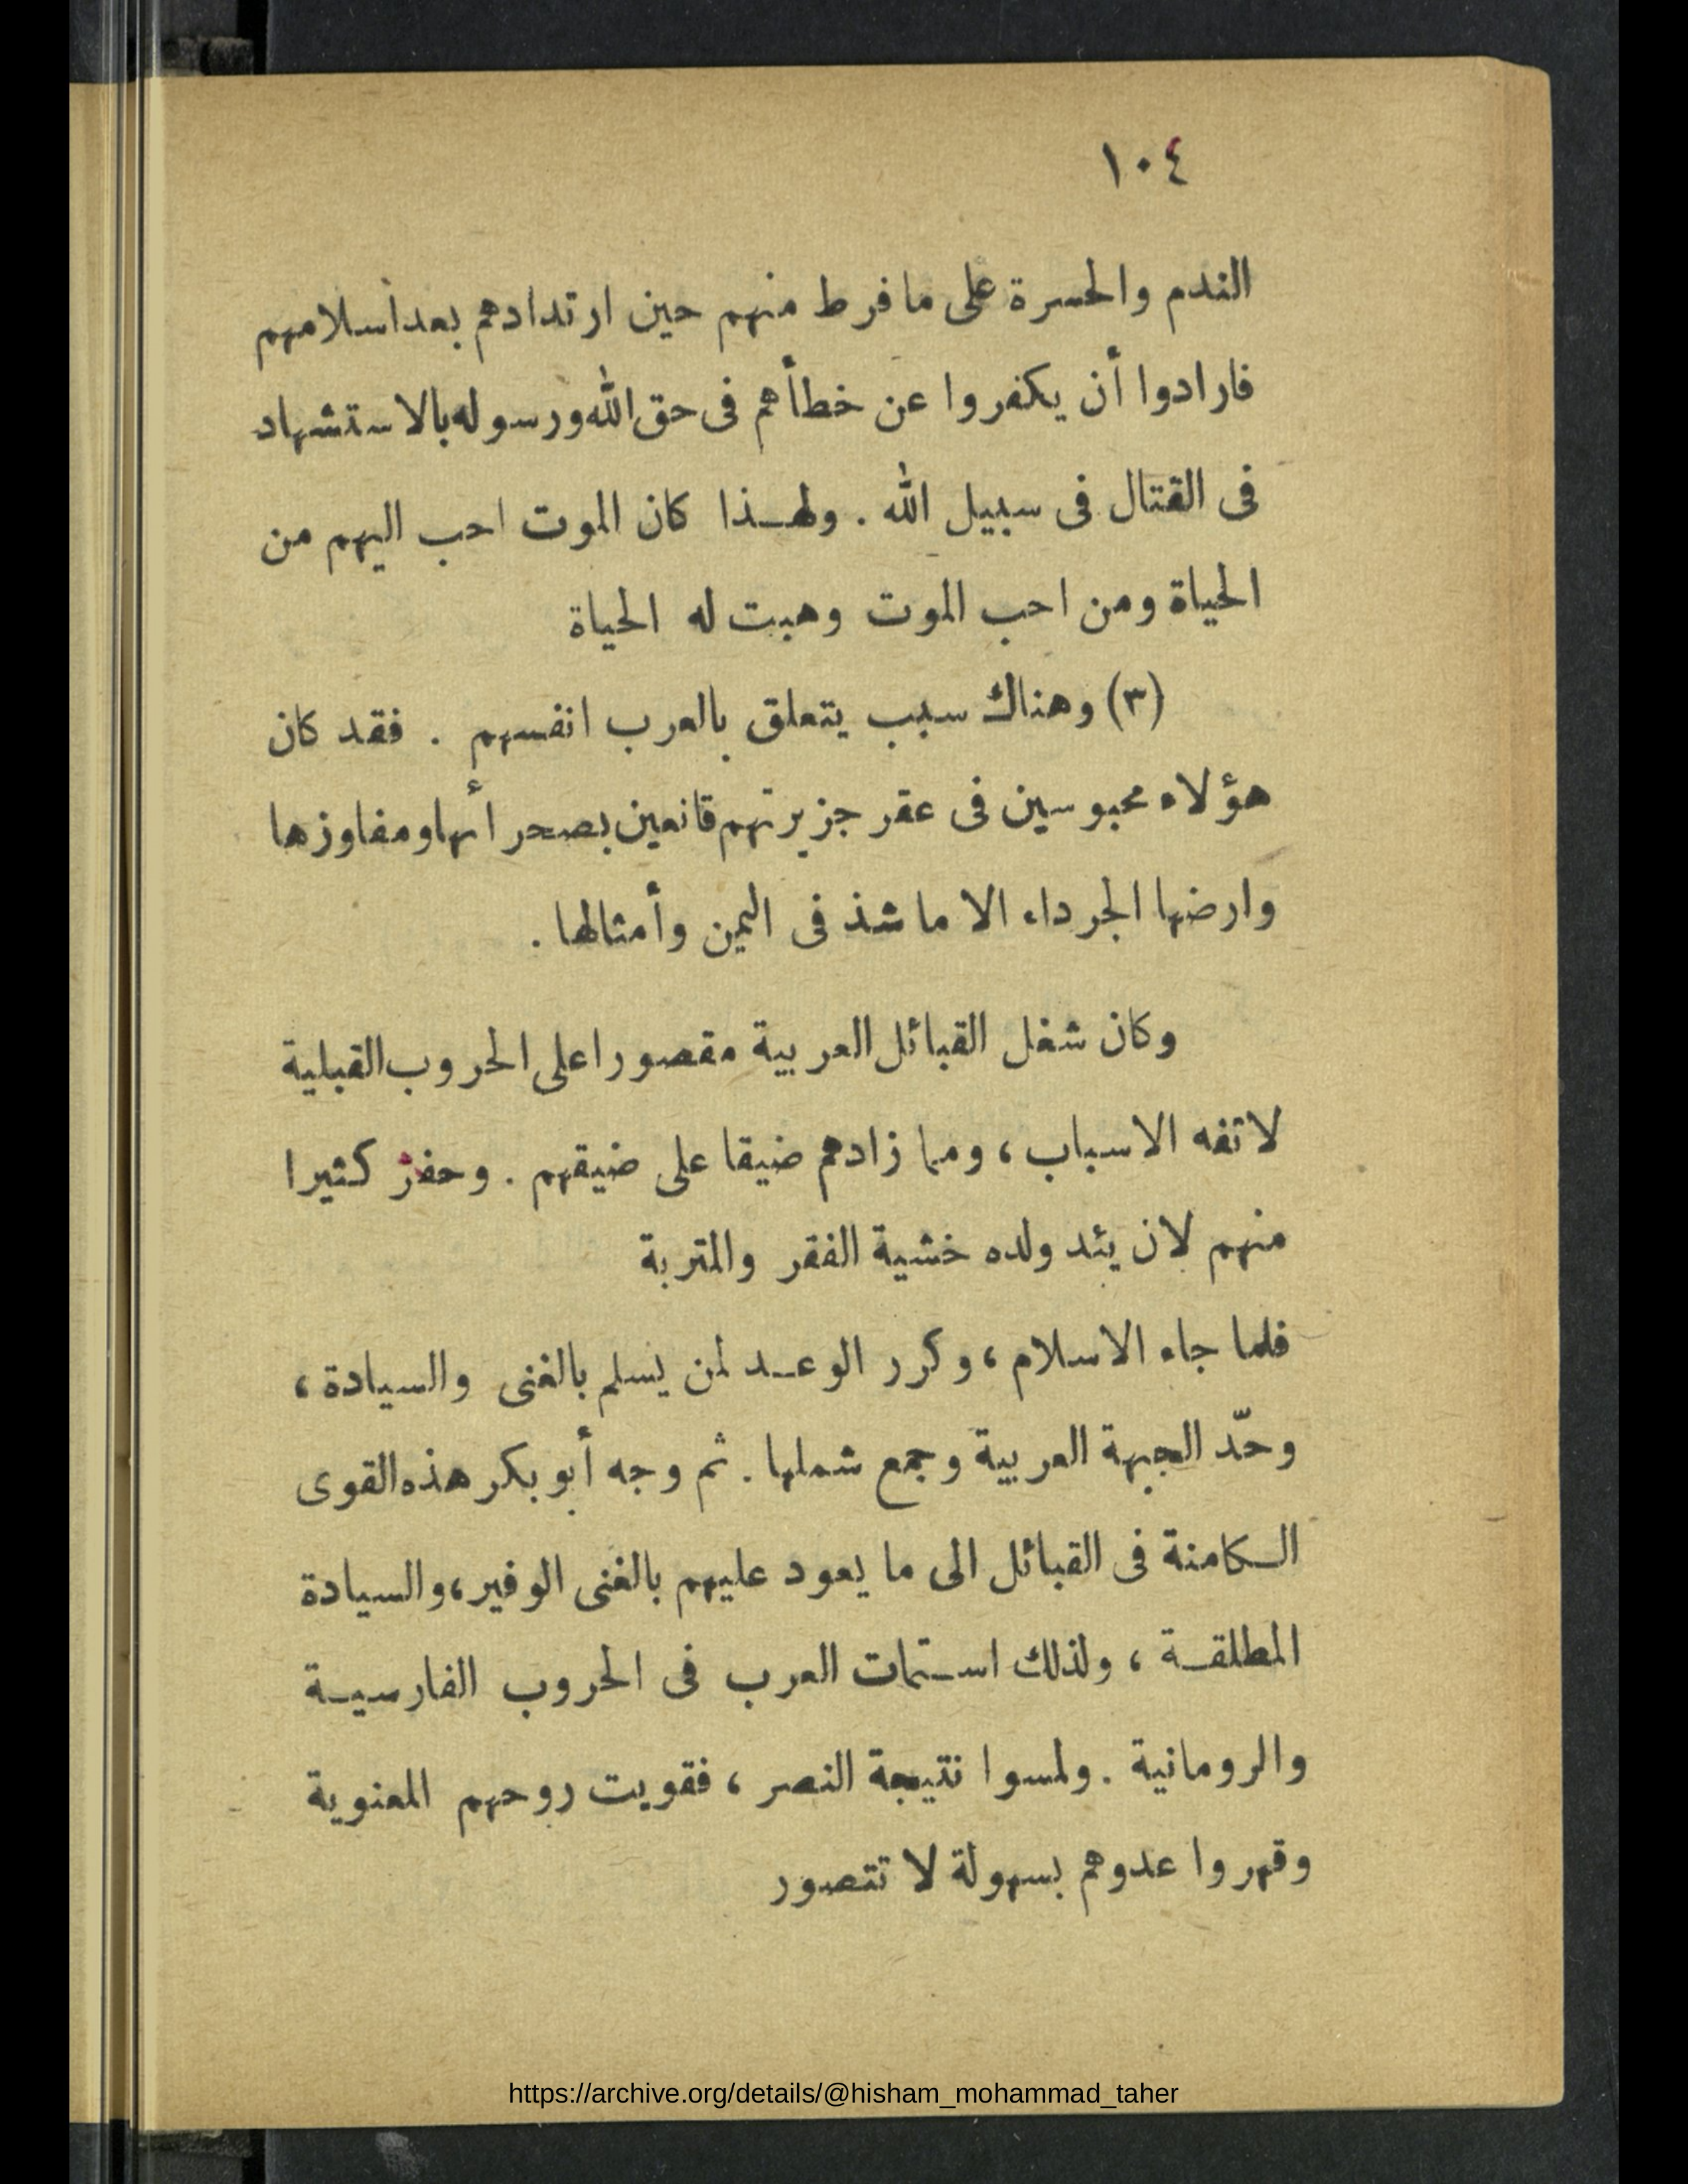 ١٠٤
الندم والحسرة على ما فرط منهم حين ارتدادهم بعد أسلامهم
فارادوا أن يكفروا عن خطأهم فى حق الله ورسوله بالاستشهاد
فى القتال فى سبيل الله . ولهـذا كان الموت احب اليهم من
الحياة ومن احب الموت وهبت له الحياة
(٣) وهناك سبب يتعلق بالعرب انفسهم . فقد كان
هؤلاء محبوسين فى عقر جزيرتهم قانعين بصحرائها ومفاوزها
وارضها الجرداء الا ما شذ فى اليمن وأمثالها .
وكان شغل القبائل العربية مقصورا على الحروب القبلية
لاتفه الاسباب ، ومما زادهم ضيقا على ضيقهم . وحفز كثيرا
منهم لان يئد ولده خشية الفقر والمتربة
فلما جاء الاسلام ، وكرر الوعـد لمن يسلم بالغنى والسيادة ،
وحّد الجبهة العربية وجمع شملها . ثم وجه أبو بكر هذه القوى
الـكامنة فى القبائل الى ما يعود عليهم بالغنى الوفير ، والسيادة
المطلقـة ، ولذلك اسـتمات العرب فى الحروب الفارسيـة
والرومانية . ولمسوا نتيجة النصر ، فقويت روحهم المعنوية
وقهروا عدوهم بسهولة لا تتصور
https://archive.org/details/@hisham_mohammad_taher